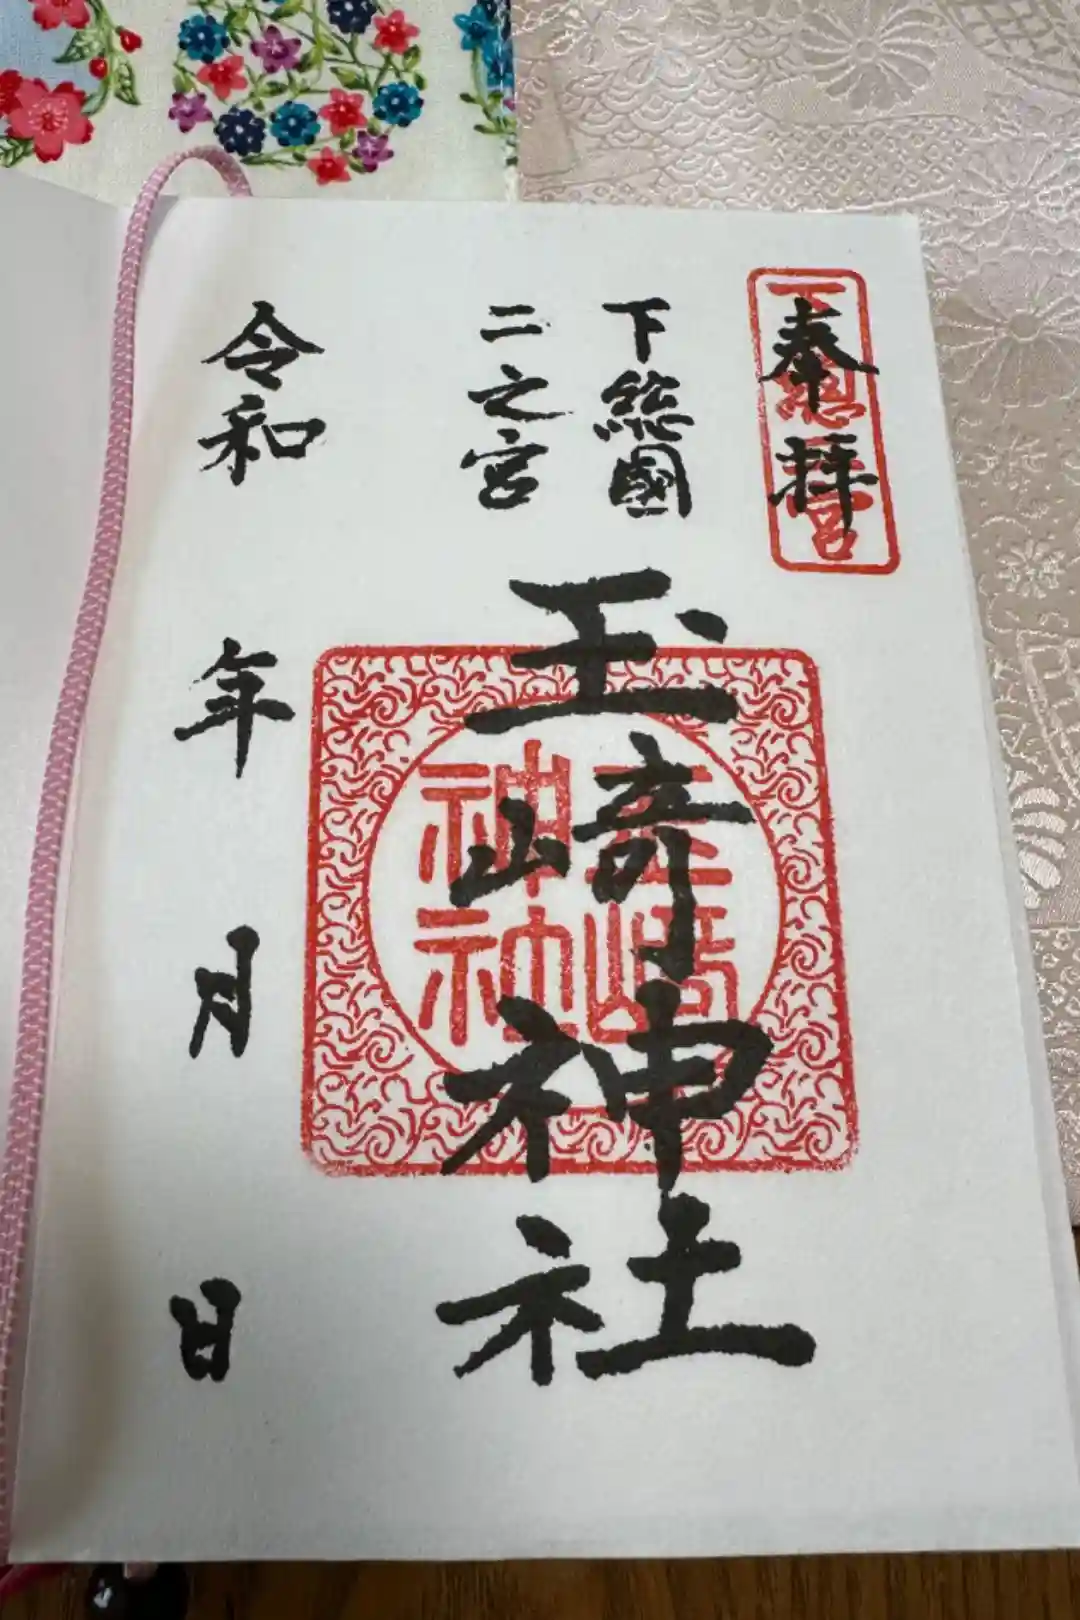 奉拝
下総二宮
下総國
二之宮
玉﨑神社
玉崎神社
令和 年 月 日